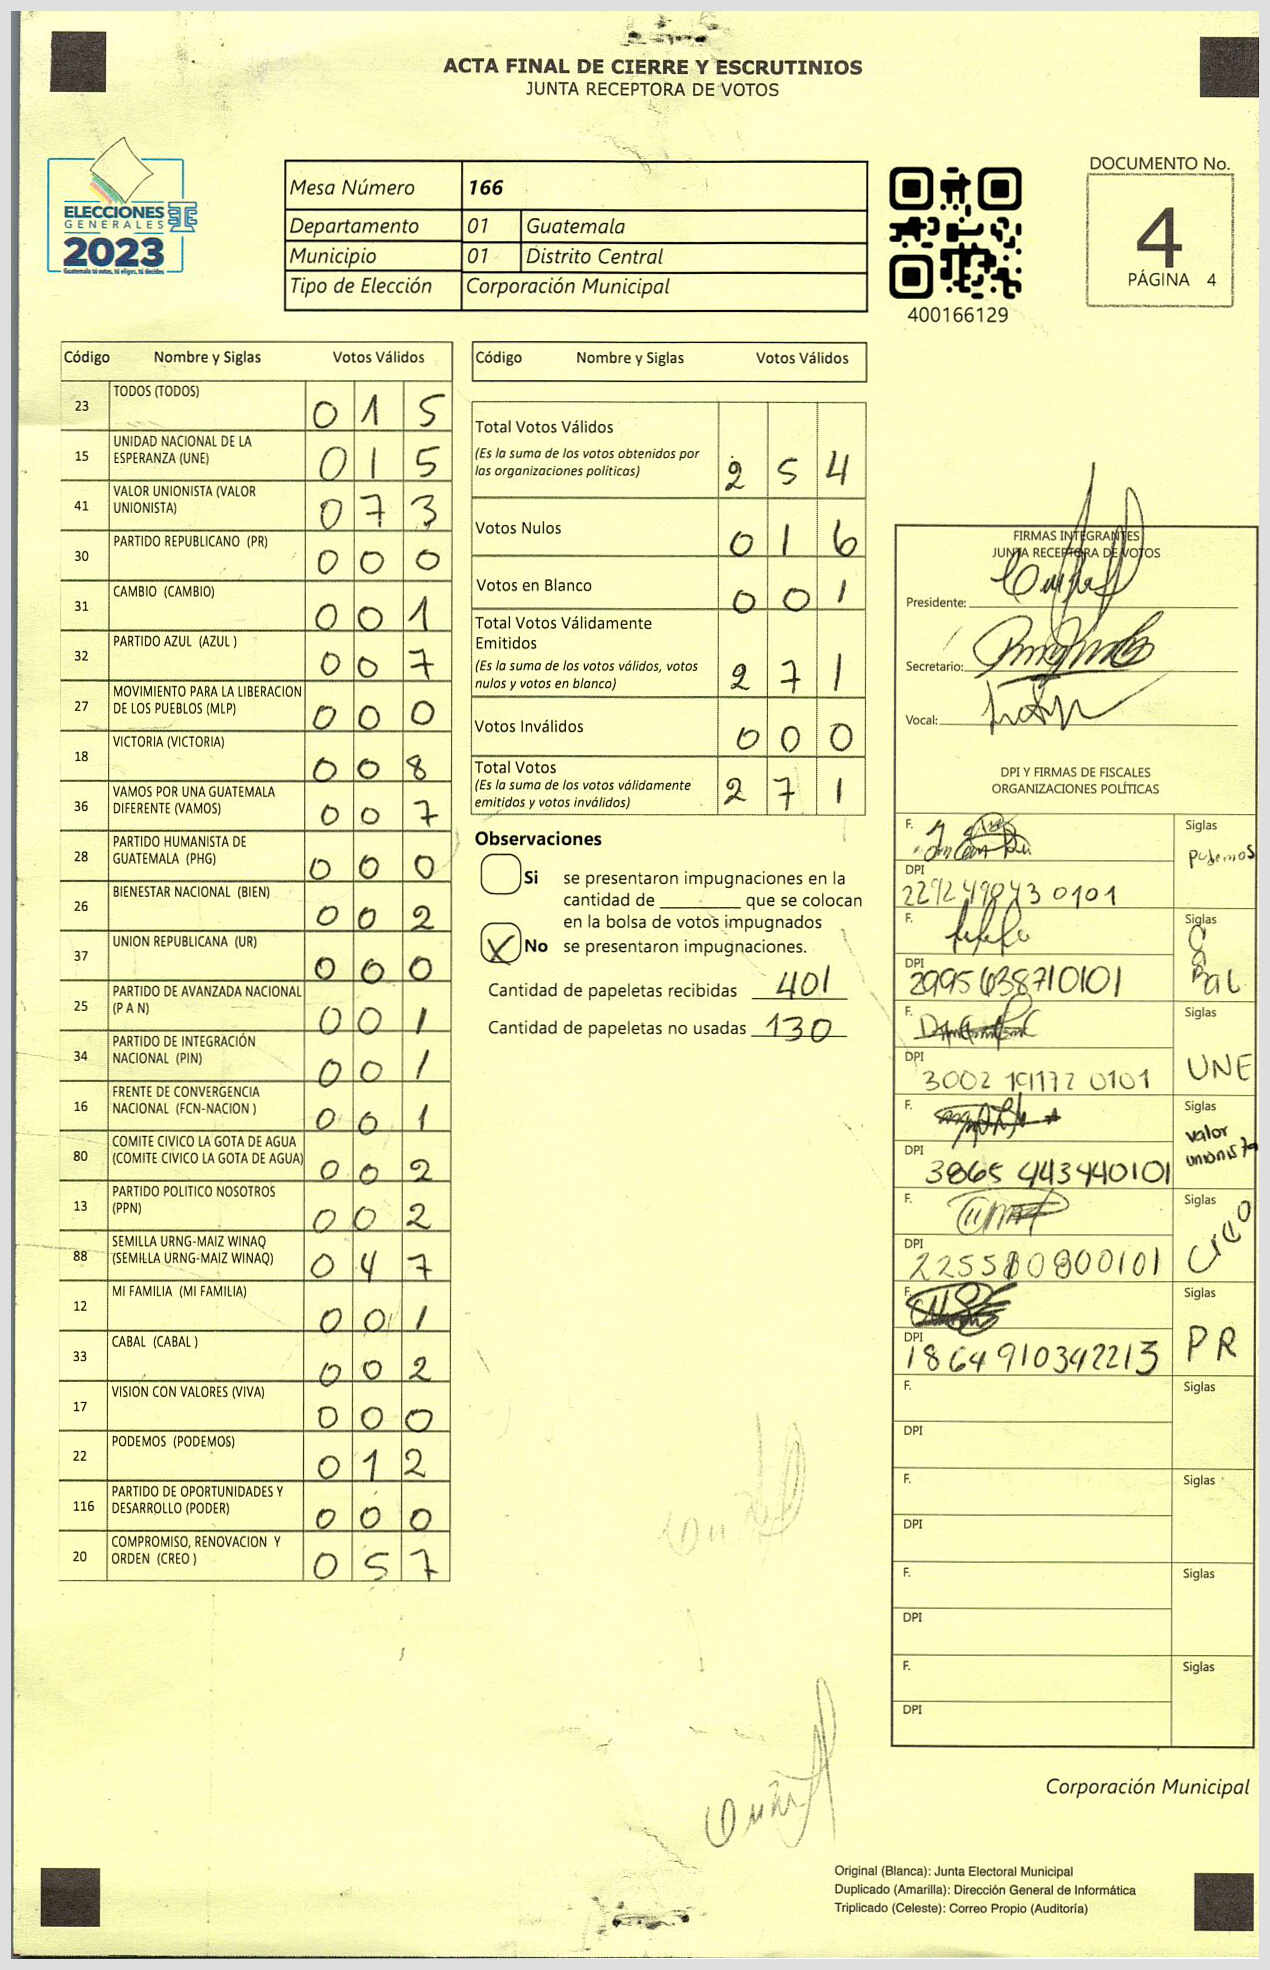 ACTA FINAL DE CIERRE Y ESCRUTINIOS
JUNTA RECEPTORA DE VOTOS
ELECCIONES
GENERALES
2023
Guatemala tú votas, tú eliges, tú decides
Mesa Número 166
Departamento 01 Guatemala
Municipio 01 Distrito Central
Tipo de Elección Corporación Municipal
400166129
DOCUMENTO No.
4
PÁGINA 4
Código Nombre y Siglas Votos Válidos
23 TODOS (TODOS) 0 1 5
15 UNIDAD NACIONAL DE LA ESPERANZA (UNE) 0 1 5
41 VALOR UNIONISTA (VALOR UNIONISTA) 0 7 3
30 PARTIDO REPUBLICANO (PR) 0 0 0
31 CAMBIO (CAMBIO) 0 0 1
32 PARTIDO AZUL (AZUL ) 0 0 7
27 MOVIMIENTO PARA LA LIBERACION DE LOS PUEBLOS (MLP) 0 0 0
18 VICTORIA (VICTORIA) 0 0 8
36 VAMOS POR UNA GUATEMALA DIFERENTE (VAMOS) 0 0 7
28 PARTIDO HUMANISTA DE GUATEMALA (PHG) 0 0 0
26 BIENESTAR NACIONAL (BIEN) 0 0 2
37 UNION REPUBLICANA (UR) 0 0 0
25 PARTIDO DE AVANZADA NACIONAL (P A N) 0 0 1
34 PARTIDO DE INTEGRACIÓN NACIONAL (PIN) 0 0 1
16 FRENTE DE CONVERGENCIA NACIONAL (FCN-NACION ) 0 0 1
80 COMITE CIVICO LA GOTA DE AGUA (COMITE CIVICO LA GOTA DE AGUA) 0 0 2
13 PARTIDO POLITICO NOSOTROS (PPN) 0 0 2
88 SEMILLA URNG-MAIZ WINAQ (SEMILLA URNG-MAIZ WINAQ) 0 4 7
12 MI FAMILIA (MI FAMILIA) 0 0 1
33 CABAL (CABAL ) 0 0 2
17 VISION CON VALORES (VIVA) 0 0 0
22 PODEMOS (PODEMOS) 0 1 2
116 PARTIDO DE OPORTUNIDADES Y DESARROLLO (PODER) 0 0 0
20 COMPROMISO, RENOVACION Y ORDEN (CREO ) 0 5 7
Código Nombre y Siglas Votos Válidos
Total Votos Válidos 2 5 4
(Es la suma de los votos obtenidos por
las organizaciones políticas)
Votos Nulos 0 1 6
Votos en Blanco 0 0 1
Total Votos Válidamente
Emitidos 2 7 1
(Es la suma de los votos válidos, votos
nulos y votos en blanco)
Votos Inválidos 0 0 0
Total Votos 2 7 1
(Es la suma de los votos válidamente
emitidos y votos inválidos)
Observaciones
Si se presentaron impugnaciones en la
cantidad de ________ que se colocan
en la bolsa de votos impugnados
X No se presentaron impugnaciones.
Cantidad de papeletas recibidas 401
Cantidad de papeletas no usadas 130
FIRMAS INTEGRANTES
JUNTA RECEPTORA DE VOTOS
Presidente:
Secretario:
Vocal:
DPI Y FIRMAS DE FISCALES
ORGANIZACIONES POLÍTICAS
F. Siglas
podemos
DPI
F. Siglas
CaBaL
DPI 2995638710101
F. Siglas
UNE
DPI
F. Siglas
valor
unionista
DPI 3865 443440101
F. Siglas
Creo
DPI
F. Siglas
PR
DPI 1864910342213
F. Siglas
DPI
F. Siglas
DPI
F. Siglas
DPI
F. Siglas
DPI
Corporación Municipal
Original (Blanca): Junta Electoral Municipal
Duplicado (Amarilla): Dirección General de Informática
Triplicado (Celeste): Correo Propio (Auditoría)